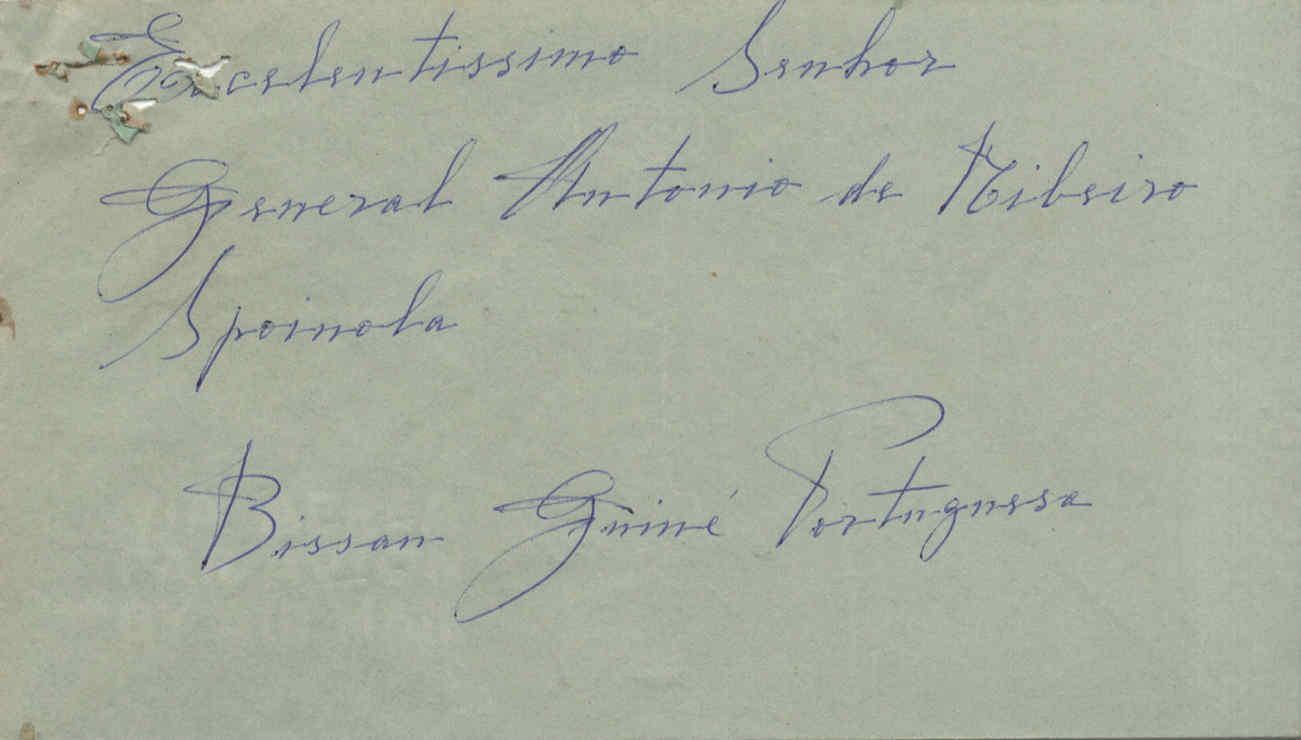 Excelentissimo Senhor
General Antonio de Ribeiro
Spoinola
Bissau Guiné Portuguesa